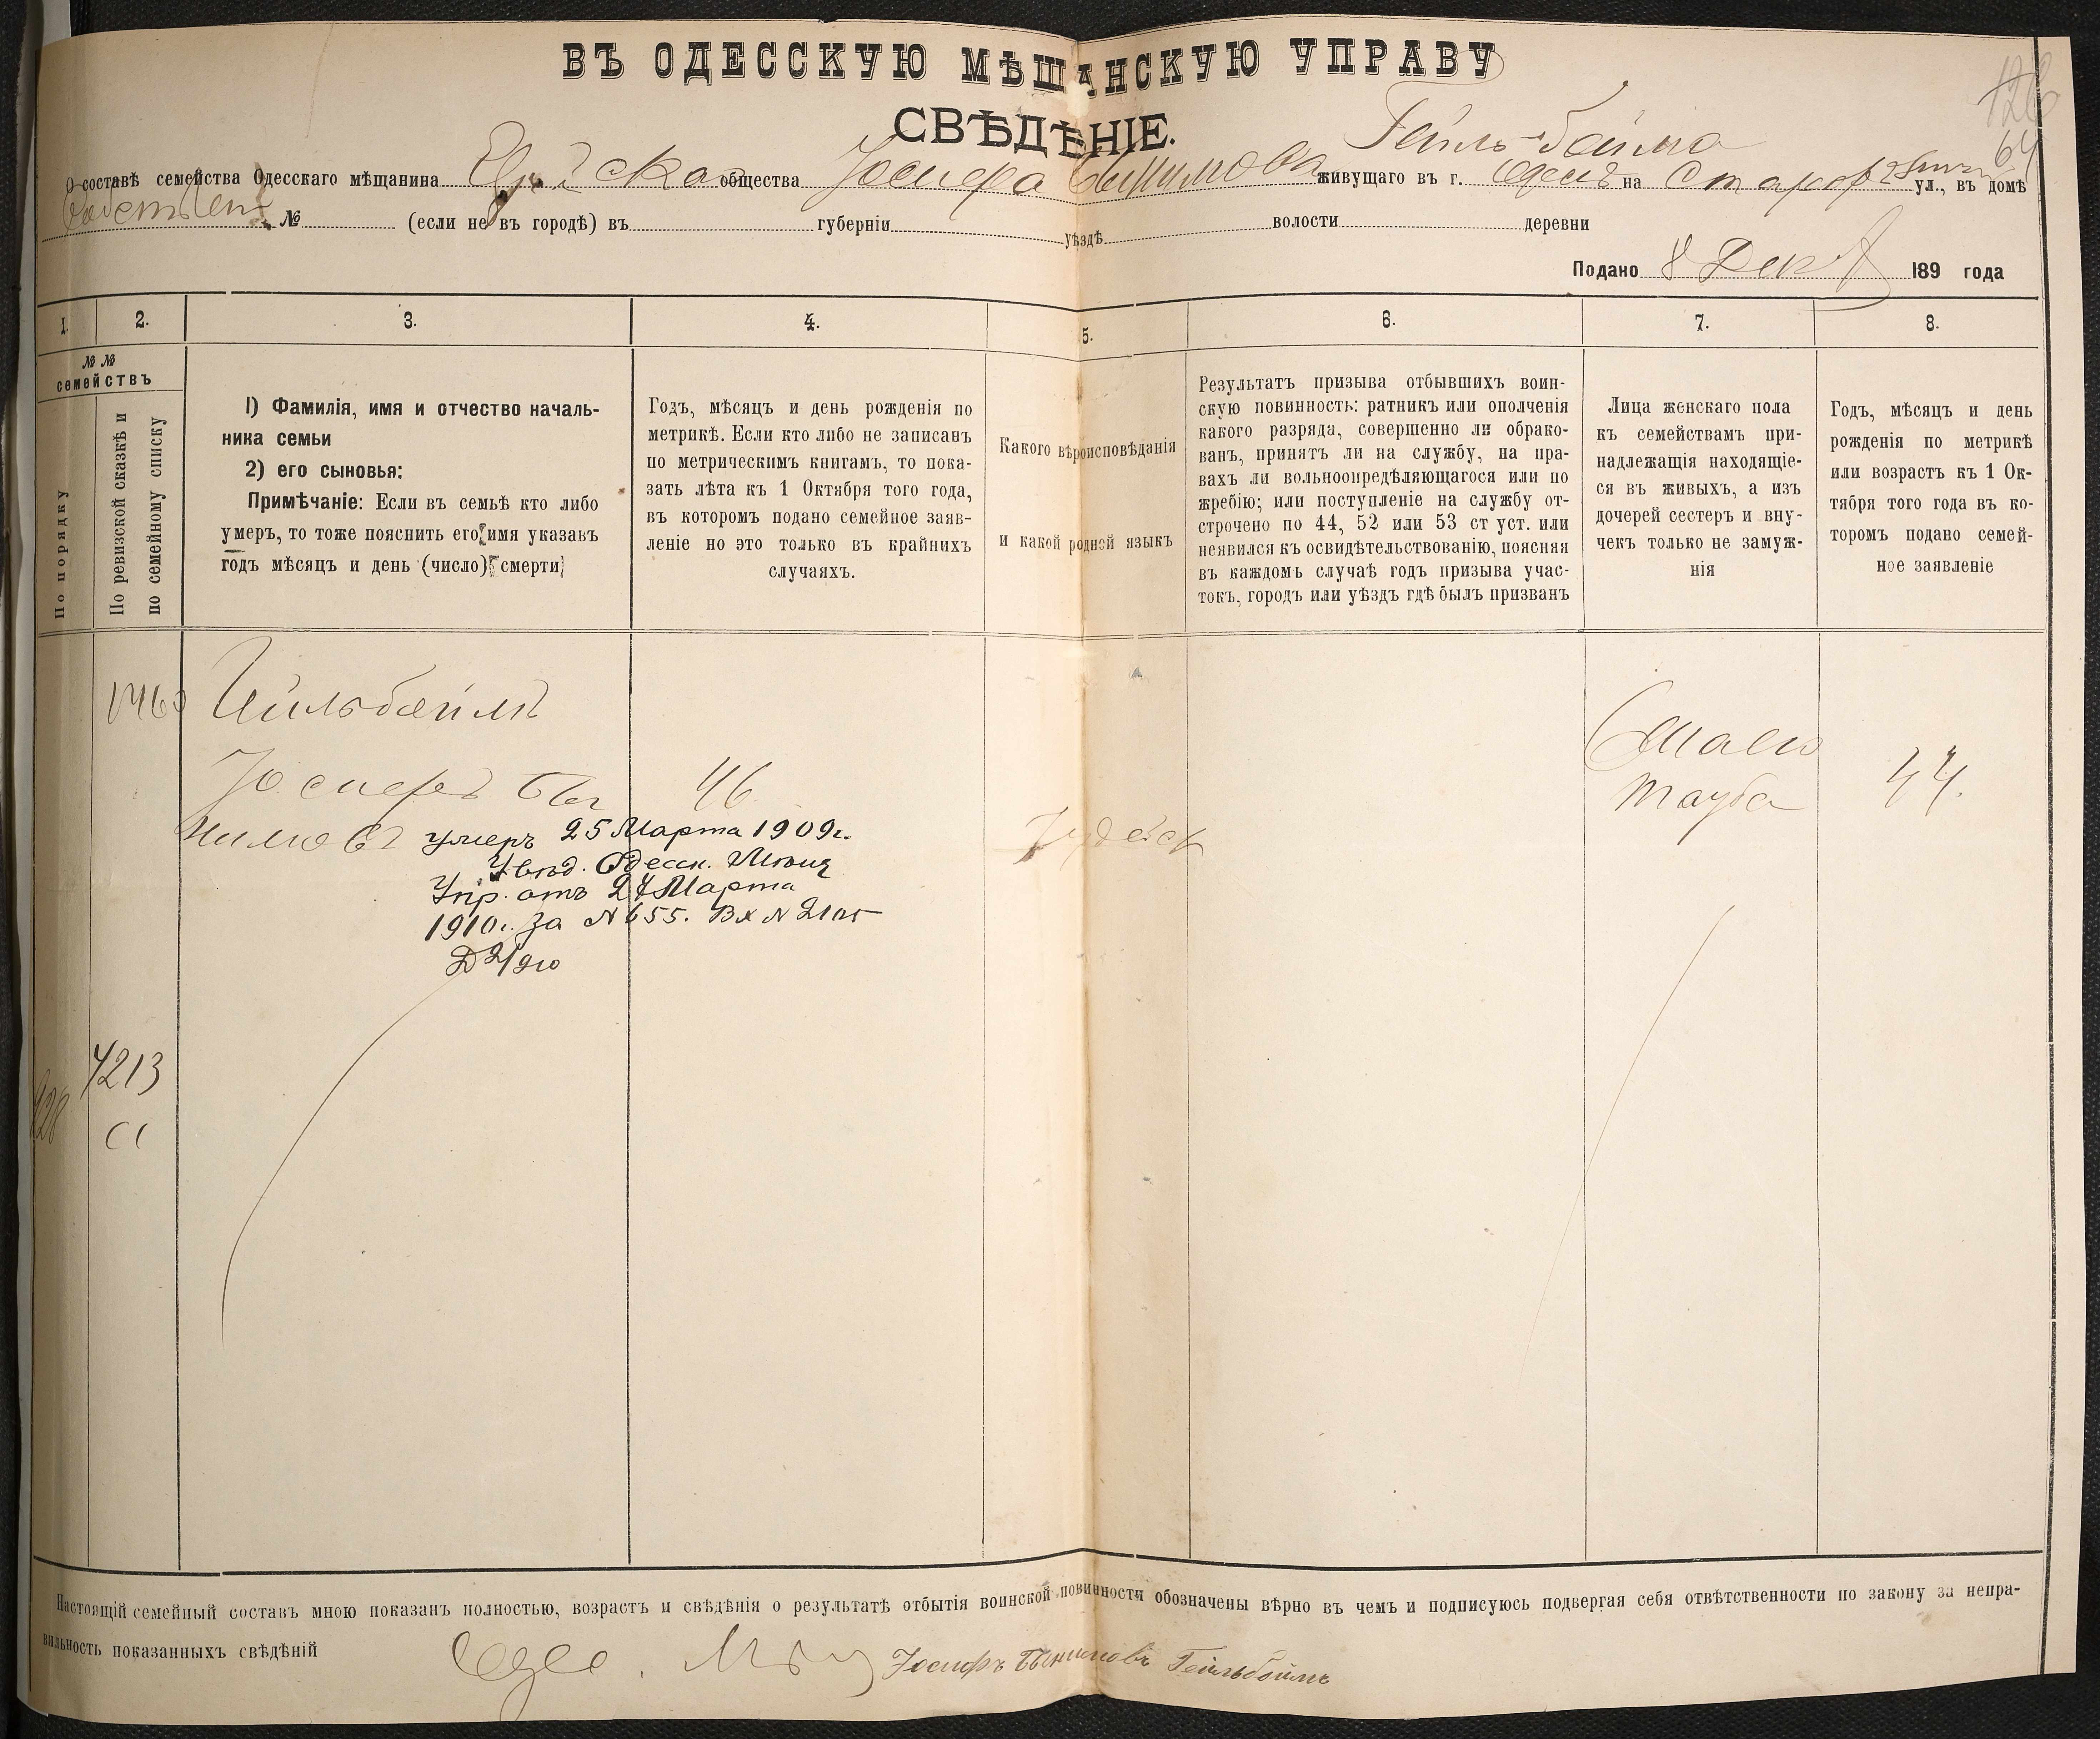 ВЪ ОДЕССКУЮ МѢЩАНСКУЮ УПРАВУ
СВѢДѢНІЕ.
126
64
Гейльбойма
О составѣ семейства Одесскаго мѣщанина общества Іосифа живущаго въ г. Одес на ул., въ домѣ
№ (если не въ городѣ) въ губерніи уѣздѣ волости деревни
Подано 8 Дек 189 года
1. 2. 3. 4. 5. 6. 7. 8.
№ №
семействъ
По порядку
По ревизской сказкѣ и
по семейному списку
1) Фамилія, имя и отчество началь-
ника семьи
2) его сыновья:
Примѣчаніе: Если въ семьѣ кто либо
умеръ, то тоже пояснить его имя указавъ
годъ мѣсяцъ и день (число) смерти
Годъ, мѣсяцъ и день рожденія по
метрикѣ. Если кто либо не записанъ
по метрическимъ книгамъ, то пока-
зать лѣта къ 1 Октября того года,
въ которомъ подано семейное заяв-
леніе но это только въ крайнихъ
случаяхъ.
Какого вѣроисповѣданія
и какой родной языкъ
Результатъ призыва отбывшихъ воин-
скую повинность: ратникъ или ополченія
какого разряда, совершенно ли обрако-
ванъ, принятъ ли на службу, на пра-
вахъ ли вольноопредѣляющагося или по
жребію; или поступленіе на службу от-
строчено по 44, 52 или 53 ст уст. или
неявился къ освидѣтельствованію, поясняя
въ каждомъ случаѣ годъ призыва учас-
токъ, городъ или уѣздъ гдѣ былъ призванъ
Лица женскаго пола
къ семействамъ при-
надлежащія находящіе-
ся въ живыхъ, а изъ
дочерей сестеръ и вну-
чекъ только не замуж-
нія
Годъ, мѣсяцъ и день
рожденія по метрикѣ
или возрастъ къ 1 Ок-
тября того года въ ко-
торомъ подано семей-
ное заявленіе
Іосифъ Бы 46
нимовъ
умеръ 25 Марта 1909г.
Увѣд. Одесск. Мѣщ
Упр. отъ 27 Марта
1910г. за № 655. Вх № 2105
Іудейск
Тауба 44.
4213
Настоящій семейный составъ мною показанъ полностью, возрастъ и свѣдѣнія о результатѣ отбытія воинской повинности обозначены вѣрно въ чемъ и подписуюсь подвергая себя отвѣтственности по закону за непра-
вильность показанныхъ свѣдѣній
Іосифъ Бынимовъ Гейльбоймъ